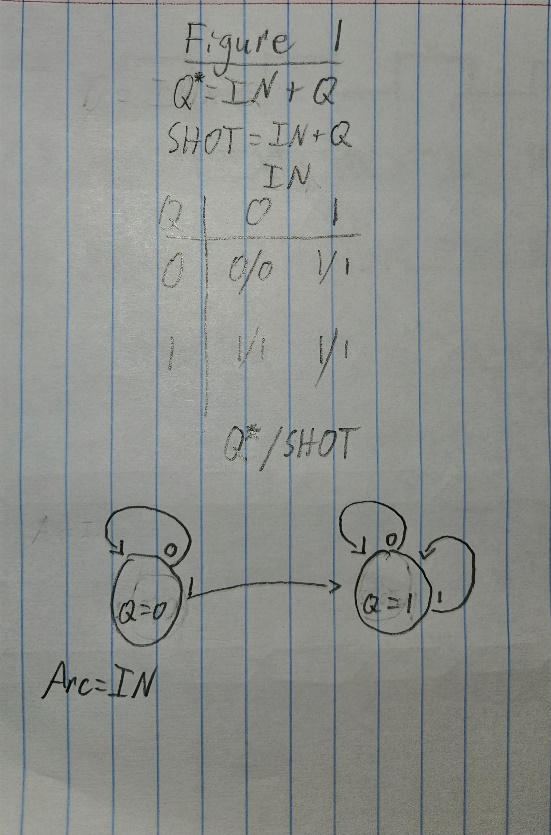 Figure 1
Q* = IN + Q
SHOT = IN + Q
IN
Q 0 1
0 0/0 1/1
1 1/1 1/1
Q*/SHOT
0 0
Q=0 1 Q=1 1
Arc=IN